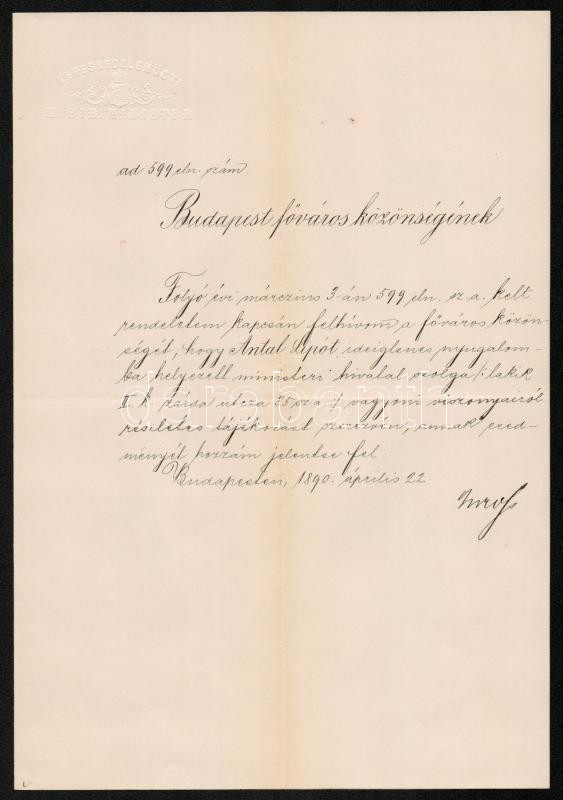 KERESKEDELEMÜGYI
M. KIR. MINISTER
ad 599 eln. szám
Budapest főváros közönségének
Folyó évi márczius 3-án 599 eln. sz. a. kelt
rendeletem kapcsán felhívom a főváros közön-
ségét, hogy Antal Lipót, ideiglenes nyugalom-
ba helyezett ministeri hivatal szolga /: lakik
utcza 35 sz. a. :/ vagyoni viszonyairól
részletes tájékozást szerezvén, annak ered-
ményét hozzám jelentse fel.
Budapesten, 1890. április 22.
Baross
darabanth